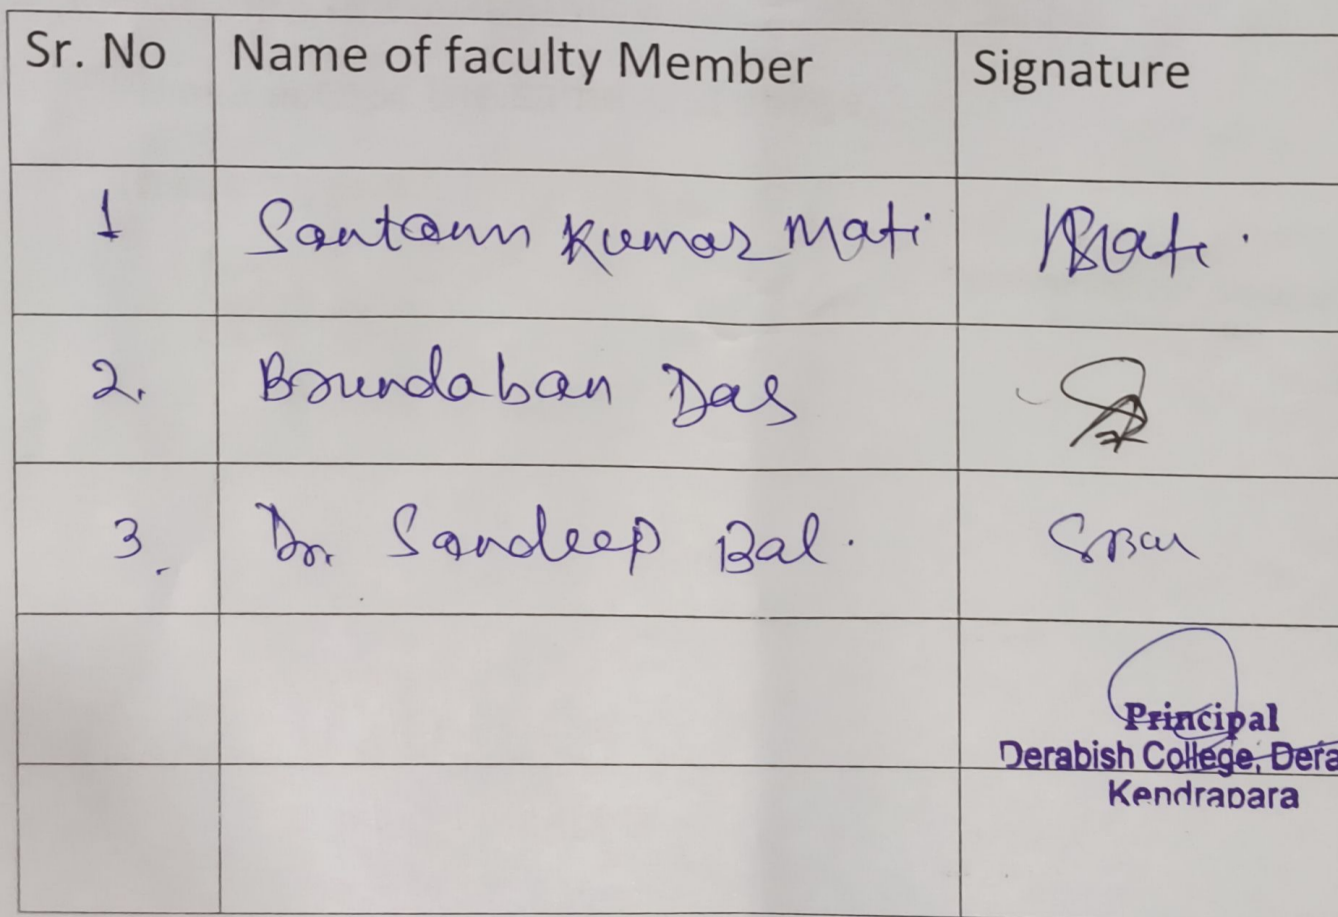 Sr. No Name of faculty Member Signature
1 Santanu Kumar Mati
2. Brundaban Das
3. Dr. Sandeep Bal. SBal
Principal
Derabish College, Dera
Kendrapara